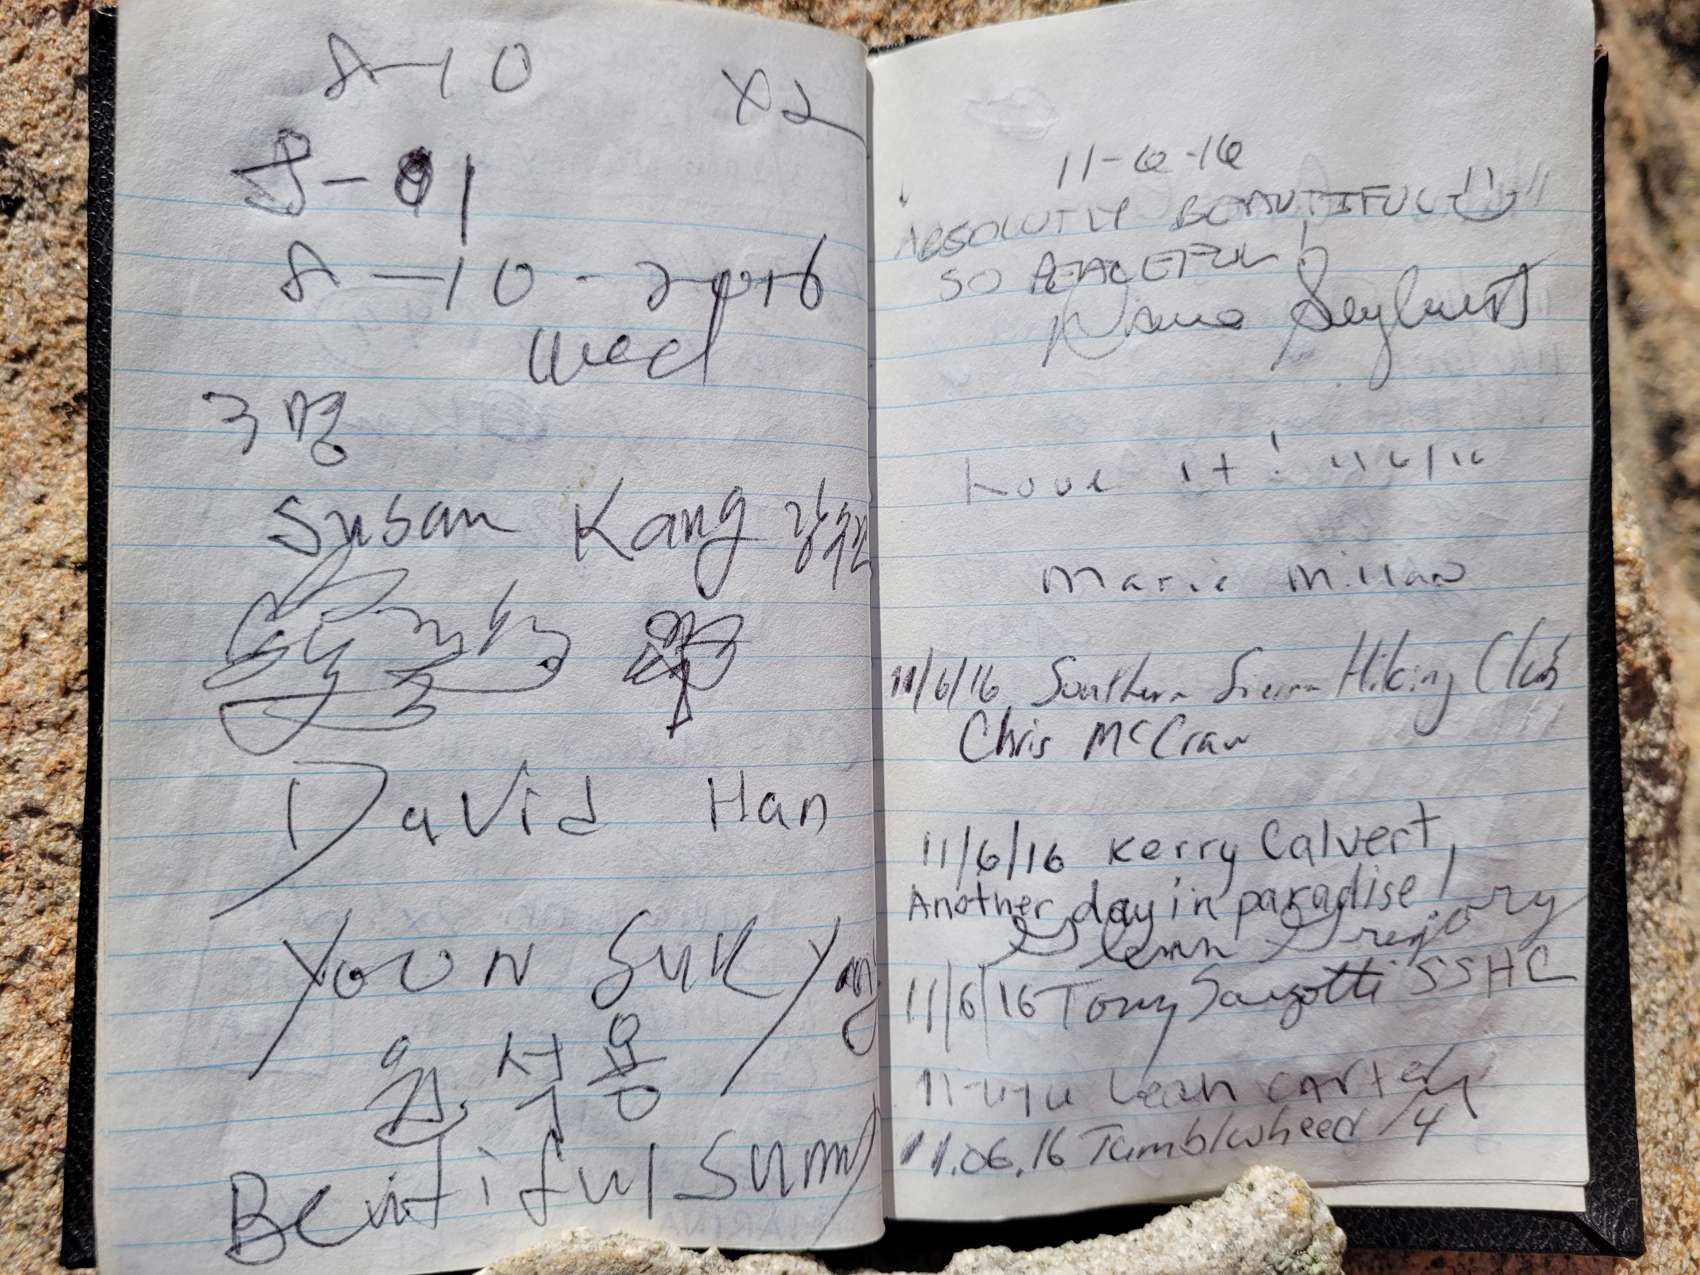 8-10
X2
8-01
8-10-2016
Wed
3명
Susan Kang 강
David Han
Yoon Suk Yang
윤석용
Beutiful Summ
11-6-16
ABSOLUTLY BEAUTIFUL
SO PEACEFUL!
Love it! 11/6/16
Marie Millan
11/6/16 Southern Sierra Hiking Club
Chris McCraw
11/6/16 Kerry Calvert,
Another day in paradise!
Glenn Gregory
11/6/16 Tony SSHC
Leah Carter
11.06.16 Tumblwheed /4